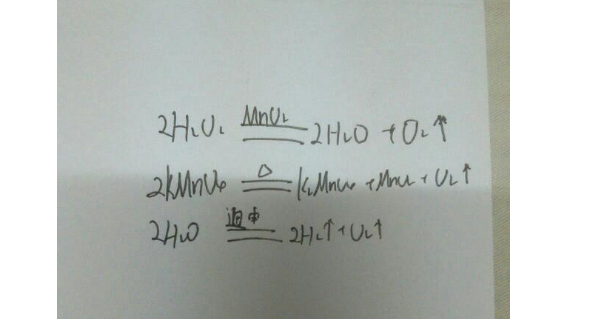 2H₂O₂ MnO₂ == 2H₂O + O₂↑
2KMnO₄ △ == K₂MnO₄ + MnO₂ + O₂↑
2H₂O 通电 == 2H₂↑ + O₂↑